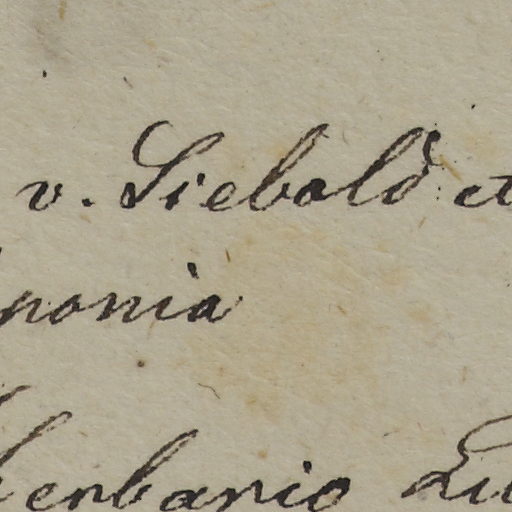 v. Siebold et
ponia
herbario